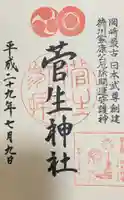 岡崎最古 日本武尊創建
徳川家康公厄除開運守護神
菅生神社
平成二十九年七月九日